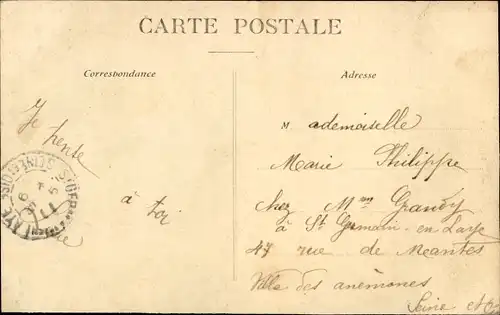 CARTE POSTALE
Correspondance
Adresse
Je pense
à toi
Mademoiselle
Marie Philippe
chez Mme Grandy
à St Germain en Laye
47 rue de Mantes
Villa des anémones
Seine et O